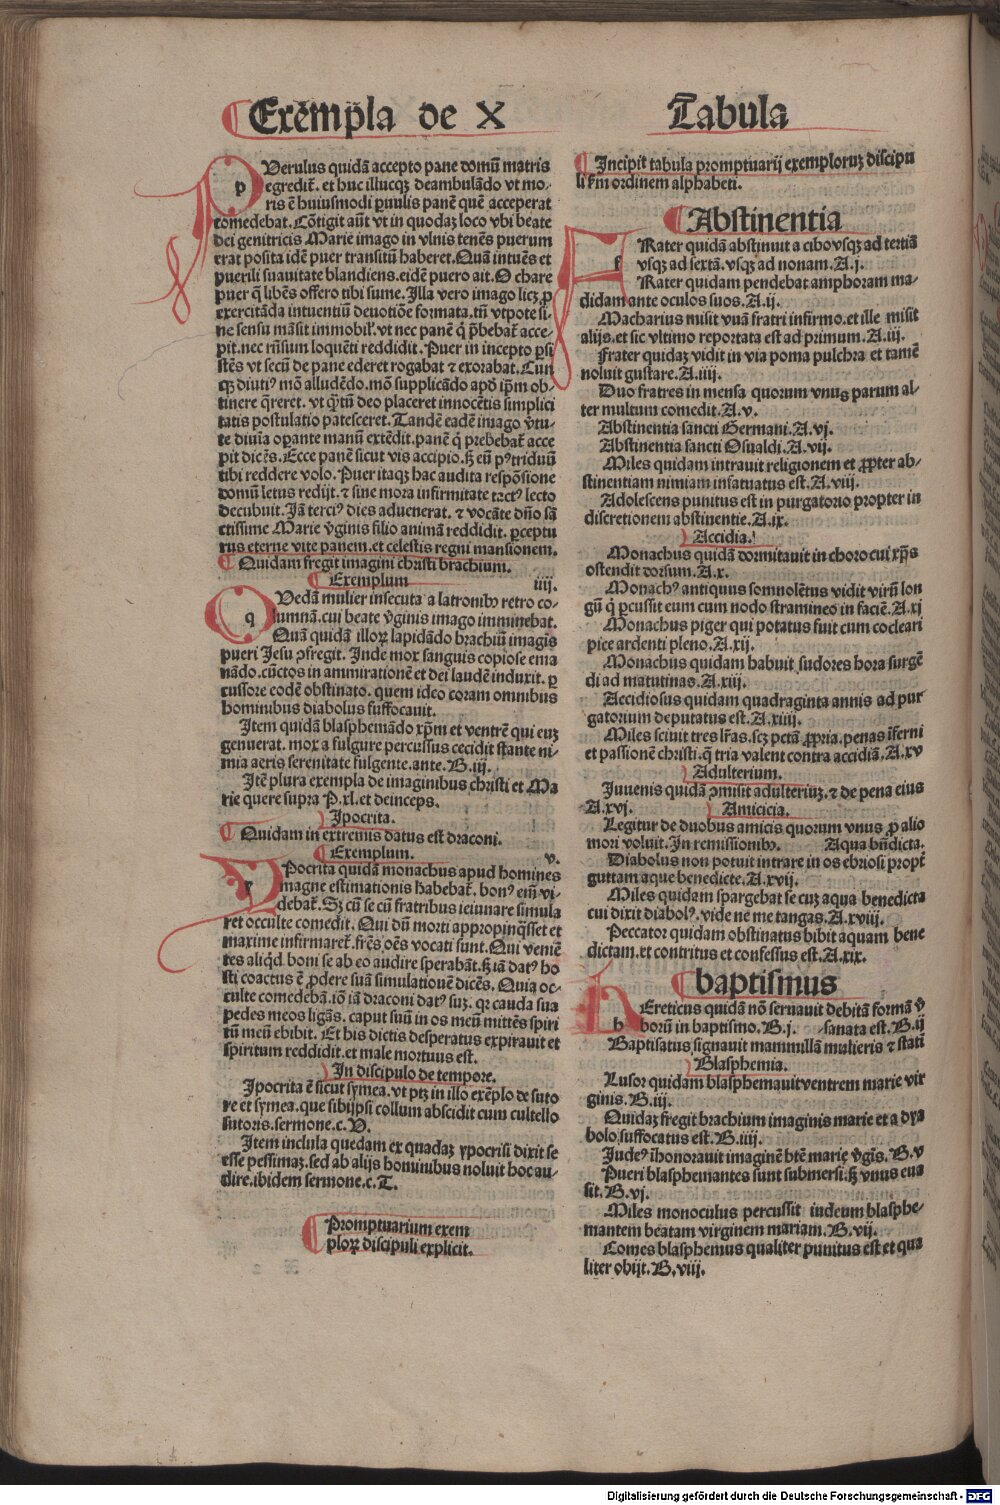 Exēmpla de X
PUerulus quidā accepto pane domū matris
egredit̄. et huc illucqȝ deambulādo vt mo-
ris ē huiusmodi puulis panē quē acceperat
comedebat. Cōtigit aūt vt in quodaȝ loco vbi beate
dei genitricis Marie imago in vlnis tenēs puerum
erat posita idē puer transitū haberet. Quā intuēs et
puerili suauitate blandiens. eidē puero ait. O chare
puer q̄ libēs offero tibi sume. Illa vero imago licȝ ꝓ
exercitāda intuentiū deuotiōe formata. tn̄ vtpote si-
ne sensu māsit immobil'. vt nec panē q̄ p̄bebat̄ acce-
pit. nec rūsum loquēti reddidit. Puer in incepto ꝑsi
stēs vt secū de pane ederet rogabat ⁊ exorabat. Cun
qȝ diutiꝰ mō alludēdo. mō supplicādo apd̄ ip̄m ob-
tinere q̄reret. vt q̄tū deo placeret innocētis simplici
tatis postulatio patesceret. Tandē eadē imago v̄tu-
te diuīa oꝑante manū extēdit. panē q̄ prebebat̄ acce
pit dicēs. Ecce panē sicut vis accipio. sȝ eū pꝰ triduū
tibi reddere volo. Puer itaqȝ hac audita respōsione
domū letus redijt. ⁊ sine mora infirmitate tactꝰ lecto
decubuit. Iā terciꝰ dies aduenerat. ⁊ vocāte dn̄o sā
ctissime Marie v̄ginis filio animā reddidit. ꝑceptu
rus eterne vite panem. et celestis regni mansionem.
Quidam fregit imagini christi brachium.
Exemplum iiij.
QUedā mulier insecuta a latronibꝰ retro co-
lumnā. cui beate v̄ginis imago imminebat.
Quā quidā illoꝝ lapidādo brachiū imagis
pueri Jesu ꝯfregit. Inde mox sanguis copiose ema
nādo. cūctos in ammirationē et dei laudē induxit. ꝑ
cussore eodē obstinato. quem ideo coram omnibus
hominibus diabolus suffocauit.
Item quidā blasphemādo xp̄m et ventrē qui euȝ
genuerat. mox a fulgure percussus cecidit stante ni-
mia aeris serenitate fulgente. ante. B. iij.
Itē plura exempla de imaginibus christi et Ma
rie quere supra P. xl. et deinceps.
Ipocrita.
Quidam in extremis datus est draconi.
Exemplum. v.
IPocrita quidā monachus apud homines
magne estimationis habebat̄. bonꝰ eim̄ vi-
debat̄. Sȝ cū se cū fratribus ieiunare simula
ret occulte comedit. Qui dū morti appropinq̄sset et
maxime infirmaret̄. frēs oēs vocati sunt. Qui veniē
tes aliqd̄. boni se ab eo audire sperabāt. sȝ iā datꝰ ho
sti coactus ē ꝓdere suā simulationē dicēs. Quia oc-
culte comedebā. iō iā draconi datꝰ suȝ. qȝ cauda sua
pedes meos ligās. caput suū in os meū mittēs spiri
tū meū ebibit. Et his dictis desperatus expirauit et
spiritum reddidit. et male mortuus est.
In discipulo de tempore.
Ipocrita ē sicut symea. vt ptȝ in illo exēplo de suto
re et symea. que sibiipsi collum abscidit cum cultello
sutoris. sermone. c. V.
Item inclusa quedam ex quadaȝ ypocrisi dixit se
esse pessimaȝ. sed ab alijs hominibus noluit hoc au-
dire. ibidem sermone. c. T.
Promptuarium exem
ploꝝ discipuli explicit.
Tabula
Incipit tabula promptuarij exemploruȝ discipu
li s̄m ordinem alphabeti.
Abstinentia
FRater quidā abstinuit a cibo vsqȝ ad tertiā
vsqȝ ad sextā. vsqȝ ad nonam. A. j.
Frater quidam pendebat amphoram ma-
didam ante oculos suos. A. ij.
Macharius misit vuā fratri infirmo. et ille misit
alijs. et sic vltimo reportata est ad primum. A. iij.
Frater quidaȝ vidit in via poma pulchra et tamē
noluit gustare. A. iiij.
Duo fratres in mensa quorum vnus parum al-
ter multum comedit. A. v.
Abstinentia sancti Germani. A. vj.
Abstinentia sancti Osualdi. A. vij.
Miles quidam intrauit religionem et ꝓpter ab-
stinentiam nimiam infatuatus est. A. viij.
Adolescens punitus est in purgatorio propter in
discretionem abstinentie. A. ix.
Accidia.
Monachus quidā dormitauit in choro cui xp̄s
ostendit dorsum. A. x.
Monachꝰ antiquus somnolētus vidit virū lon
gū q̄ ꝑcussit eum cum nodo stramineo in faciē. A. xj
Monachus piger qui potatus fuit cum cocleari
pice ardenti pleno. A. xij.
Monachus quidam habuit sudores hora surgē
di ad matutinas. A. xiij.
Accidiosus quidam quadraginta annis ad pur
gatorium deputatus est. A. xiiij.
Miles sciuit tres lr̄as. scȝ petā ꝓpria. penas īferni
et passionē christi. q̄ tria valent contra accidiā. A. xv
Adulterium.
Iuuenis quidā ꝯmisit adulteriuȝ. ⁊ de pena eius
A. xvj. Amicicia.
Legitur de duobus amicis quorum vnus ꝓ alio
mori voluit. In remissionibꝰ. Aqua bn̄dicta.
Diabolus non potuit intrare in os ebriosi propt̄
guttam aque benedicte. A. xvij.
Miles quidam spargebat se cuȝ aqua benedicta
cui dixit diabolꝰ. vide ne me tangas. A. xviij.
Peccator quidam obstinatus bibit aquam bene
dictam. et contritus et confessus est. A. xix.
baptismus
hEreticus quidā nō seruauit debitā formā v̄
borū in baptismo. B. j. sanata est. B. ij
Baptisatus signauit mammillā mulieris ⁊ stati
Blasphemia.
Lusor quidam blasphemauit ventrem marie vir
ginis. B. iij.
Quidaȝ fregit brachium imaginis marie et a dya
bolo suffocatus est. B. iiij.
Judeꝰ īhonorauit imaginē btē marie v̄gīs. B. v
Pueri blasphemantes sunt submersi. sȝ vnus eua
sit. B. vj.
Miles monoculus percussit iudeum blasphe-
mantem beatam virginem mariam. B. vij.
Comes blasphemus qualiter punitus est et qua
liter obijt. B. viij.
Digitalisierung gefördert durch die Deutsche Forschungsgemeinschaft - DFG